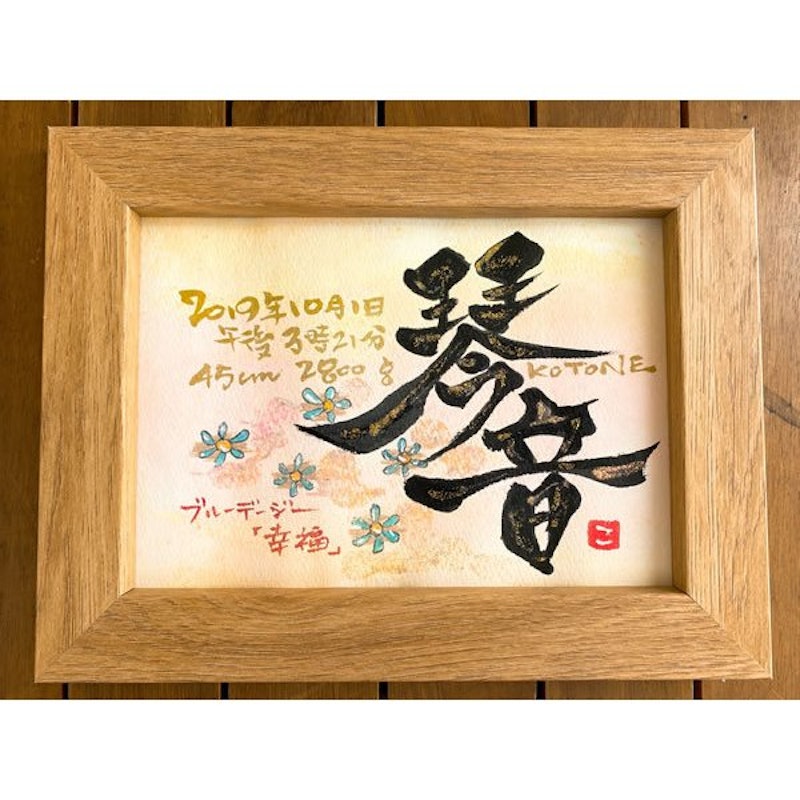 琴音
KOTONE
2019年10月1日
午後3時21分
45cm 2800g
ブルーデージー
「幸福」
こ